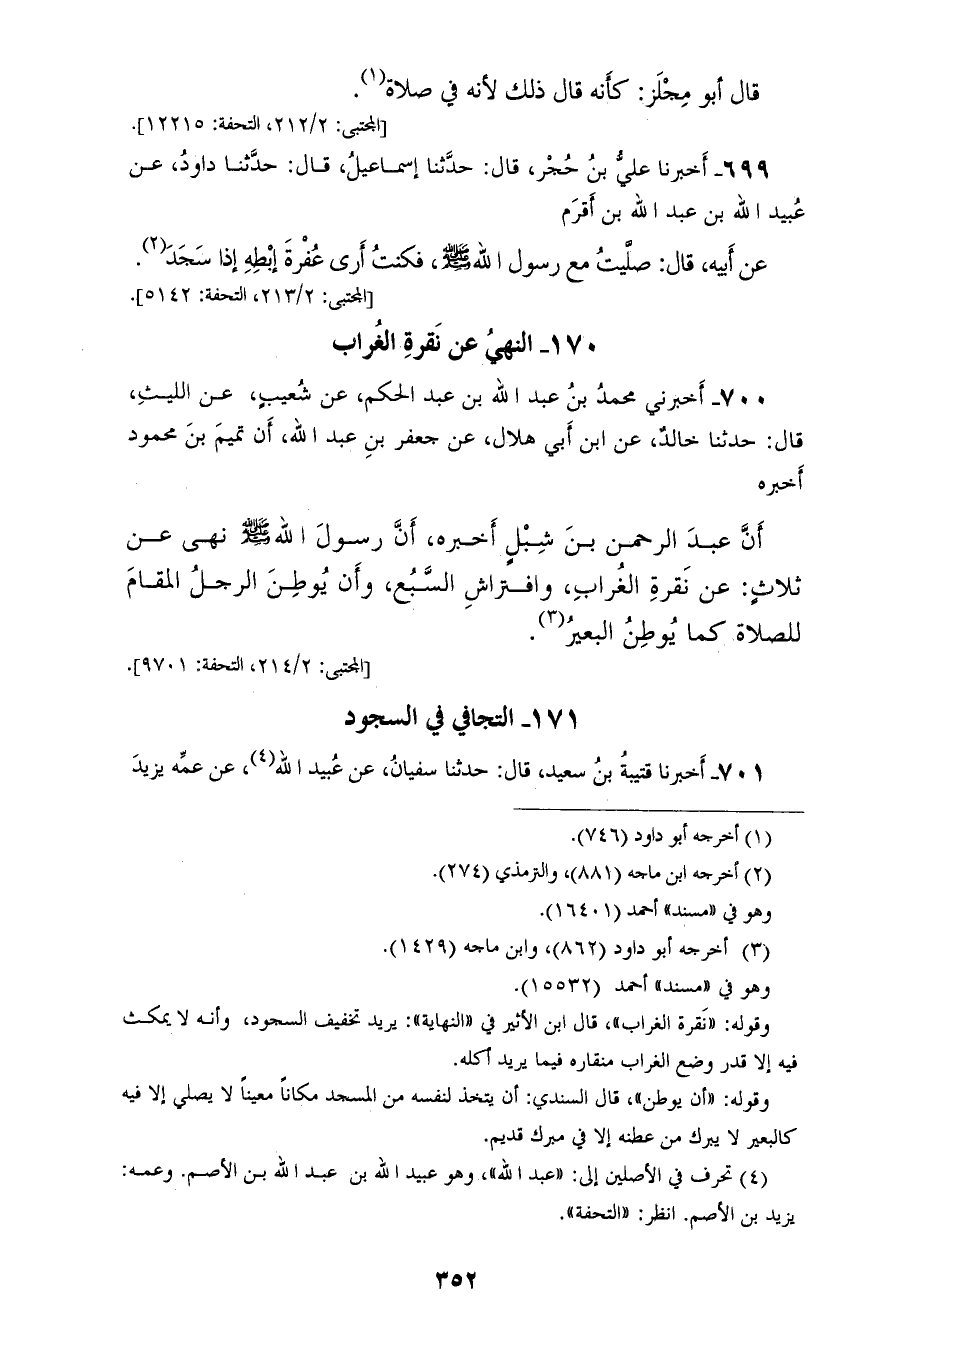 قال أبو مِجْلَز: كأَنه قال ذلك لأنه في صلاة(١).
[المجتبى: ٢١٢/٢، التحفة: ١٢٢١٥].
٦٩٩ـ أَخبرنا عليُّ بنُ حُجْر، قال: حدَّثنا إسماعيلُ، قال: حدَّثنا داودُ، عن
عُبيد الله بن عبد الله بن أَقرَم
عن أَبيه، قال: صلَّيتُ مع رسول اللهﷺ، فكنتُ أَرى عُفْرةَ إبْطِهِ إذا سَجَدَ(٢).
[المجتبى: ٢١٣/٢، التحفة: ٥١٤٢].
١٧٠ـ النهيُ عن نَقرةِ الغُراب
٧٠٠ـ أَخبرني محمدُ بنُ عبد الله بن عبد الحكم، عن شُعيبٍ، عن الليثِ،
قال: حدثنا خالدٌ، عن ابن أَبي هلال، عن جعفر بنِ عبد الله، أَن تميمَ بنَ محمود
أَخبره
أَنَّ عبدَ الرحمن بنَ شِبْلٍ أَخبره، أَنَّ رسولَ اللهﷺ نهى عن
ثلاثٍ: عن نَقرةِ الغُرابِ، وافتراشِ السَّبُع، وأَن يُوطِنَ الرجلُ المقامَ
للصلاة كما يُوطِنُ البعيرُ(٣).
[المجتبى: ٢١٤/٢، التحفة: ٩٧٠١].
١٧١ـ التجافي في السجود
٧٠١ـ أَخبرنا قتيبةُ بنُ سعيد، قال: حدثنا سفيانُ، عن عُبيد الله(٤)، عن عمِّه يزيدَ
(١) أخرجه أبو داود (٧٤٦).
(٢) أخرجه ابن ماجه (٨٨١)، والترمذي (٢٧٤).
وهو في «مسند» أحمد (١٦٤٠١).
(٣) أخرجه أبو داود (٨٦٢)، وابن ماجه (١٤٢٩).
وهو في «مسند» أحمد (١٥٥٣٢).
وقوله: «نَقرة الغراب»، قال ابن الأثير في «النهاية»: يريد تخفيف السجود، وأنه لا يمكث
فيه إلا قدر وضع الغراب منقاره فيما يريد أكله.
وقوله: «أن يوطن»، قال السندي: أن يتخذ لنفسه من المسجد مكاناً معيناً لا يصلي إلا فيه
كالبعير لا يبرك من عطنه إلا في مبرك قديم.
(٤) تحرف في الأصلين إلى: «عبد الله»، وهو عبيد الله بن عبد الله بن الأصم. وعمه:
يزيد بن الأصم. انظر: «التحفة».
٣٥٢